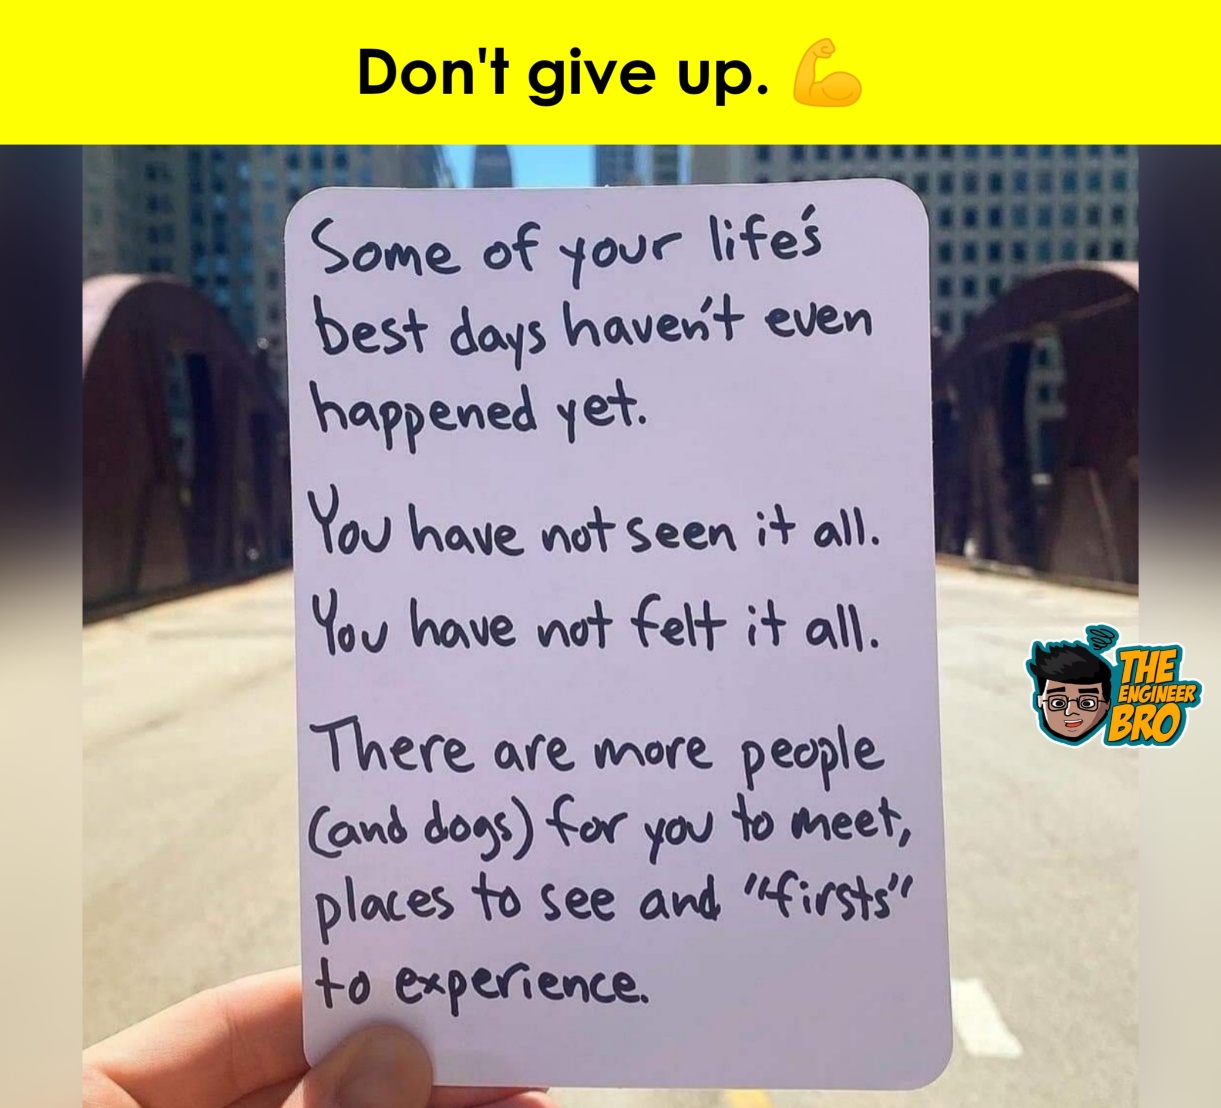 Don't give up. 💪
Some of your life's
best days haven't even
happened yet.
You have not seen it all.
You have not felt it all.
There are more people
(and dogs) for you to meet,
places to see and "firsts"
to experience.
THE
ENGINEER
BRO